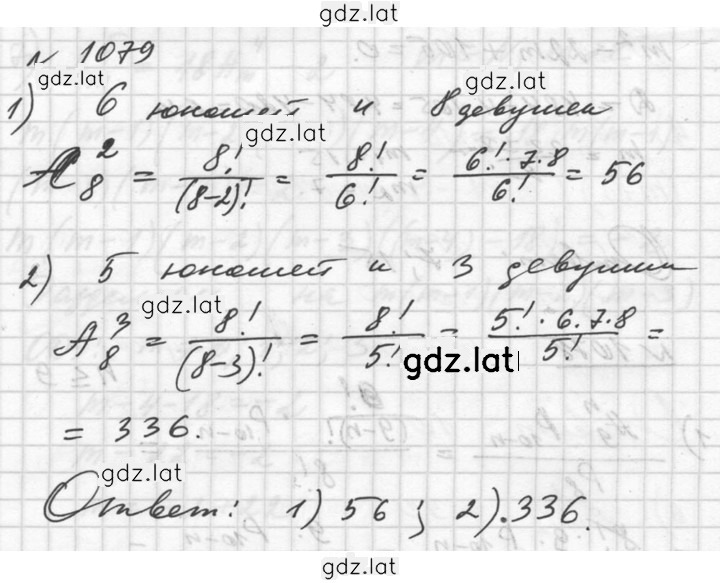 gdz.lat
№ 1079
gdz.lat
gdz.lat
1) 6 юношей и 8 девушек
gdz.lat
A₈² = 8!/(8-2)! = 8!/6! = 6!·7·8/6! = 56
2) 5 юношей и 3 девушки
gdz.lat
A₈³ = 8!/(8-3)! = 8!/5! = 5!·6·7·8/5! =
gdz.lat
= 336.
gdz.lat
Ответ: 1) 56 ; 2) 336.
gdz.lat